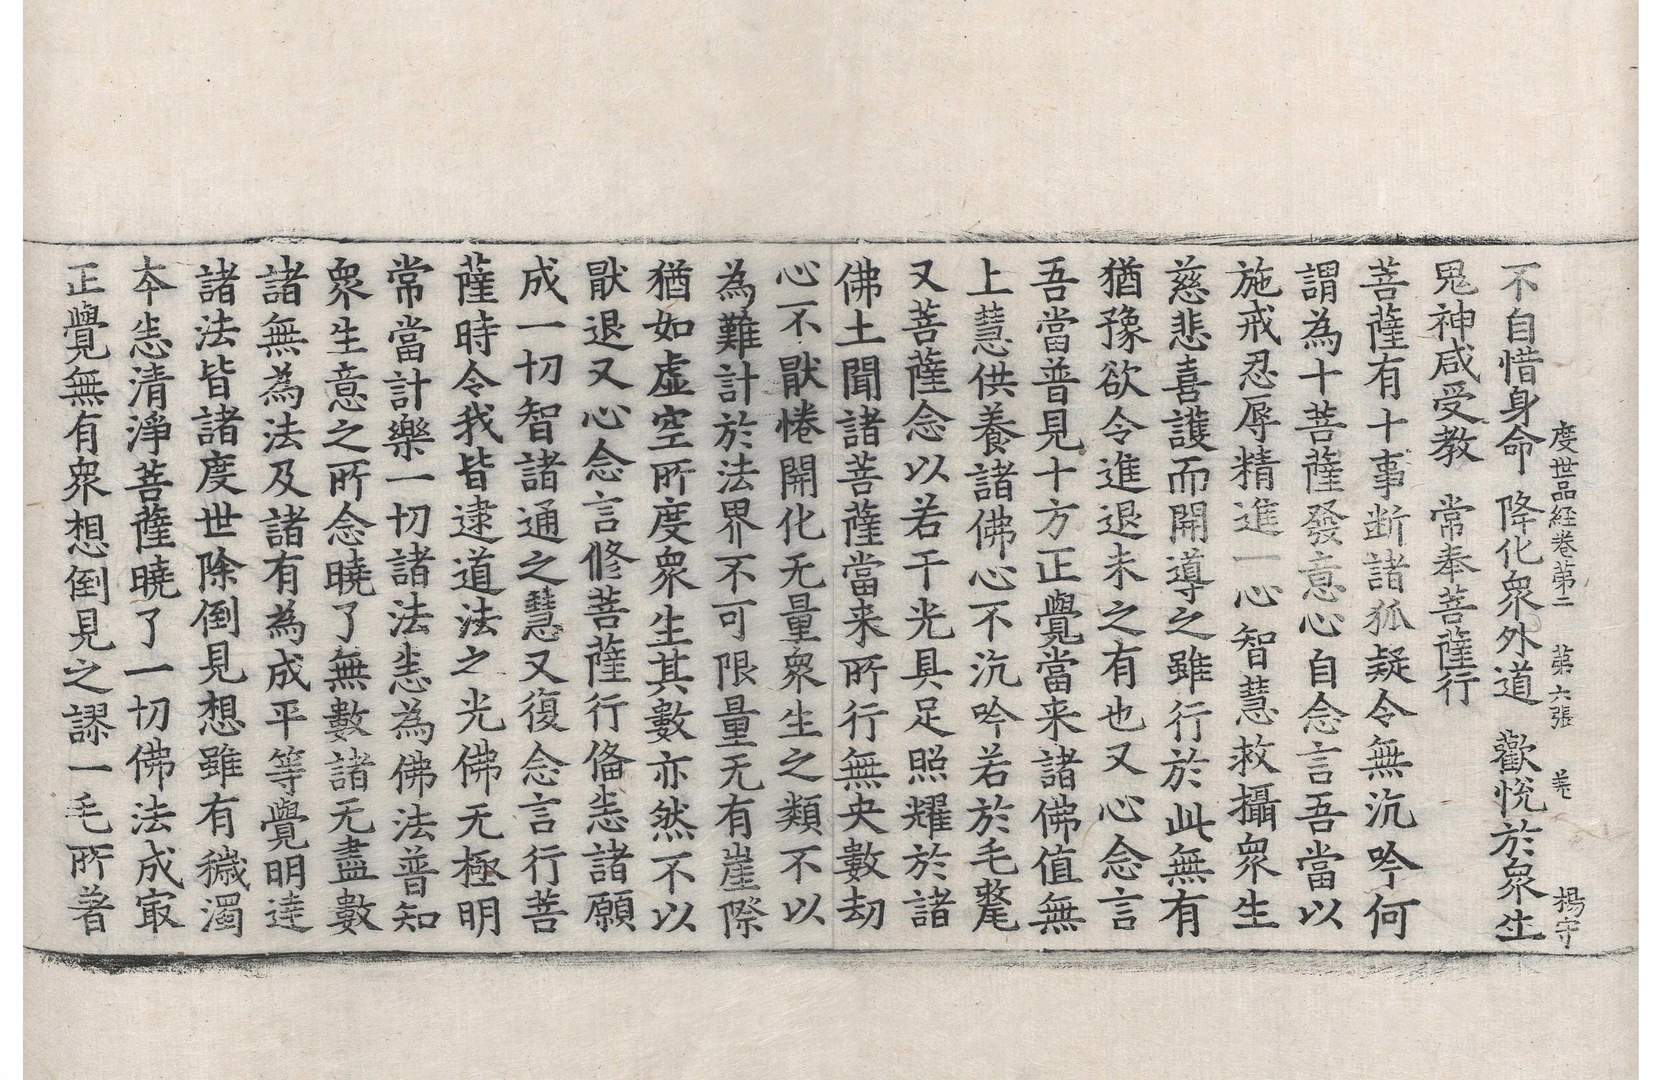 度世品経卷第二 第六張 羑 楊守
不自惜身命 降化衆外道 歡悅於衆生
鬼神咸受教 常奉菩薩行
菩薩有十事断諸狐疑令無沉吟何
謂為十菩薩發意心自念言吾當以
施戒忍辱精進一心智慧救攝衆生
慈悲喜護而開導之雖行於此無有
猶豫欲令進退未之有也又心念言
吾當普見十方正覺當来諸佛值無
上慧供養諸佛心不沉吟若於毛氂
又菩薩念以若干光具足照耀於諸
佛土聞諸菩薩當来所行無央數劫
心不猒惓開化无量衆生之類不以
為難計於法界不可限量无有崖際
猶如虛空所度衆生其數亦然不以
猒退又心念言修菩薩行俻恚諸願
成一切智諸通之慧又復念言行菩
薩時令我皆逮道法之光佛无極明
常當計樂一切諸法恚為佛法普知
衆生意之所念曉了無數諸无盡數
諸無為法及諸有為成平等覺明達
諸法皆諸度世除倒見想雖有穢濁
夲恚清淨菩薩曉了一切佛法成㝡
正覺無有衆想倒見之謬一毛所著